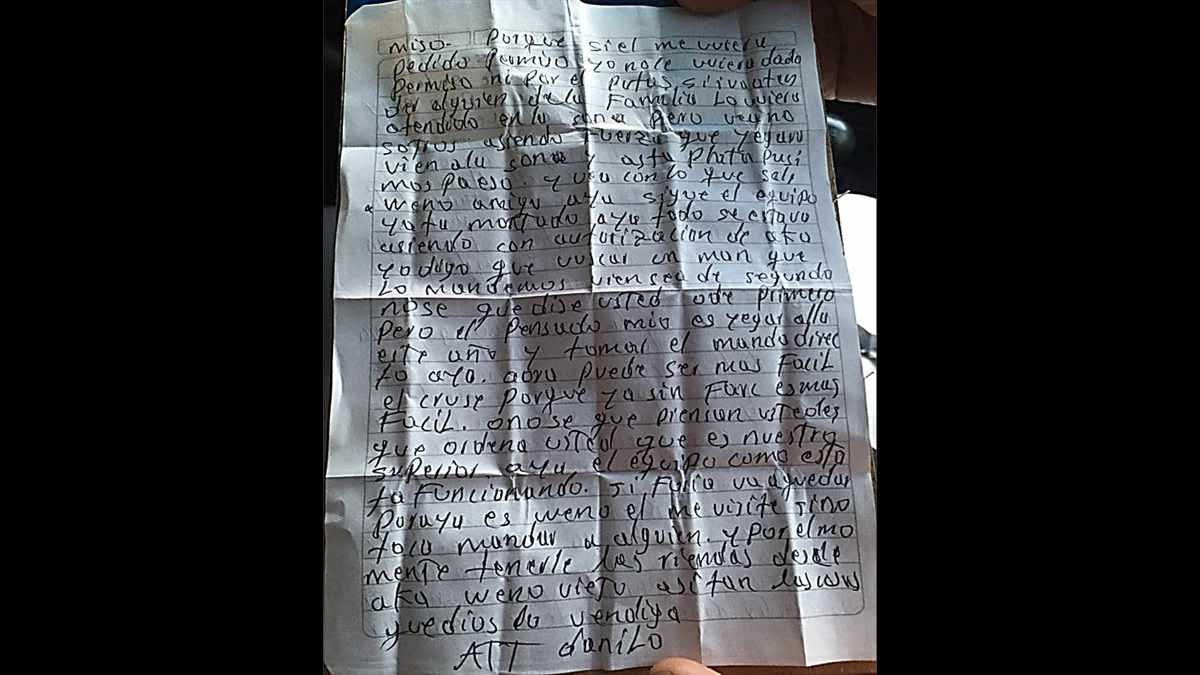 miso. Porque si el me uviera
pedido Permiso yo no le uviera dado
Permiso ni por el putas si iva aten
der alguien de la Familia Lo uviera
atendido en la sona pero vey no
sotros asiendo fuerza que yegara
vien ala sona y asta plata pusi
mos pa eso. y vea con lo que sale
weno amigo aya sigue el equipo
ya ta montado aya todo se estava
asiendo con autorizacion de aka
yo digo que vuscar un man que
Lo mandemos vien sea de segundo
nose que dise usted o de primero
pero el pensado mio es yegar alla
este año y tomar el mando direc
to aya. aora puede ser mas Facil
el cruse porque ya sin Farc es mas
Facil. o nose que piensan ustedes
que ordena usted que es nuestro
superior aya el equipo como esta
ta Funcionando. si va a quedar
por aya es weno el me visite sino
toca mandar a alguien. y por el mo
mente tenerle las riendas desde
aka weno viejo asi tan las cosas
que dios lo vendiga
ATT danilo